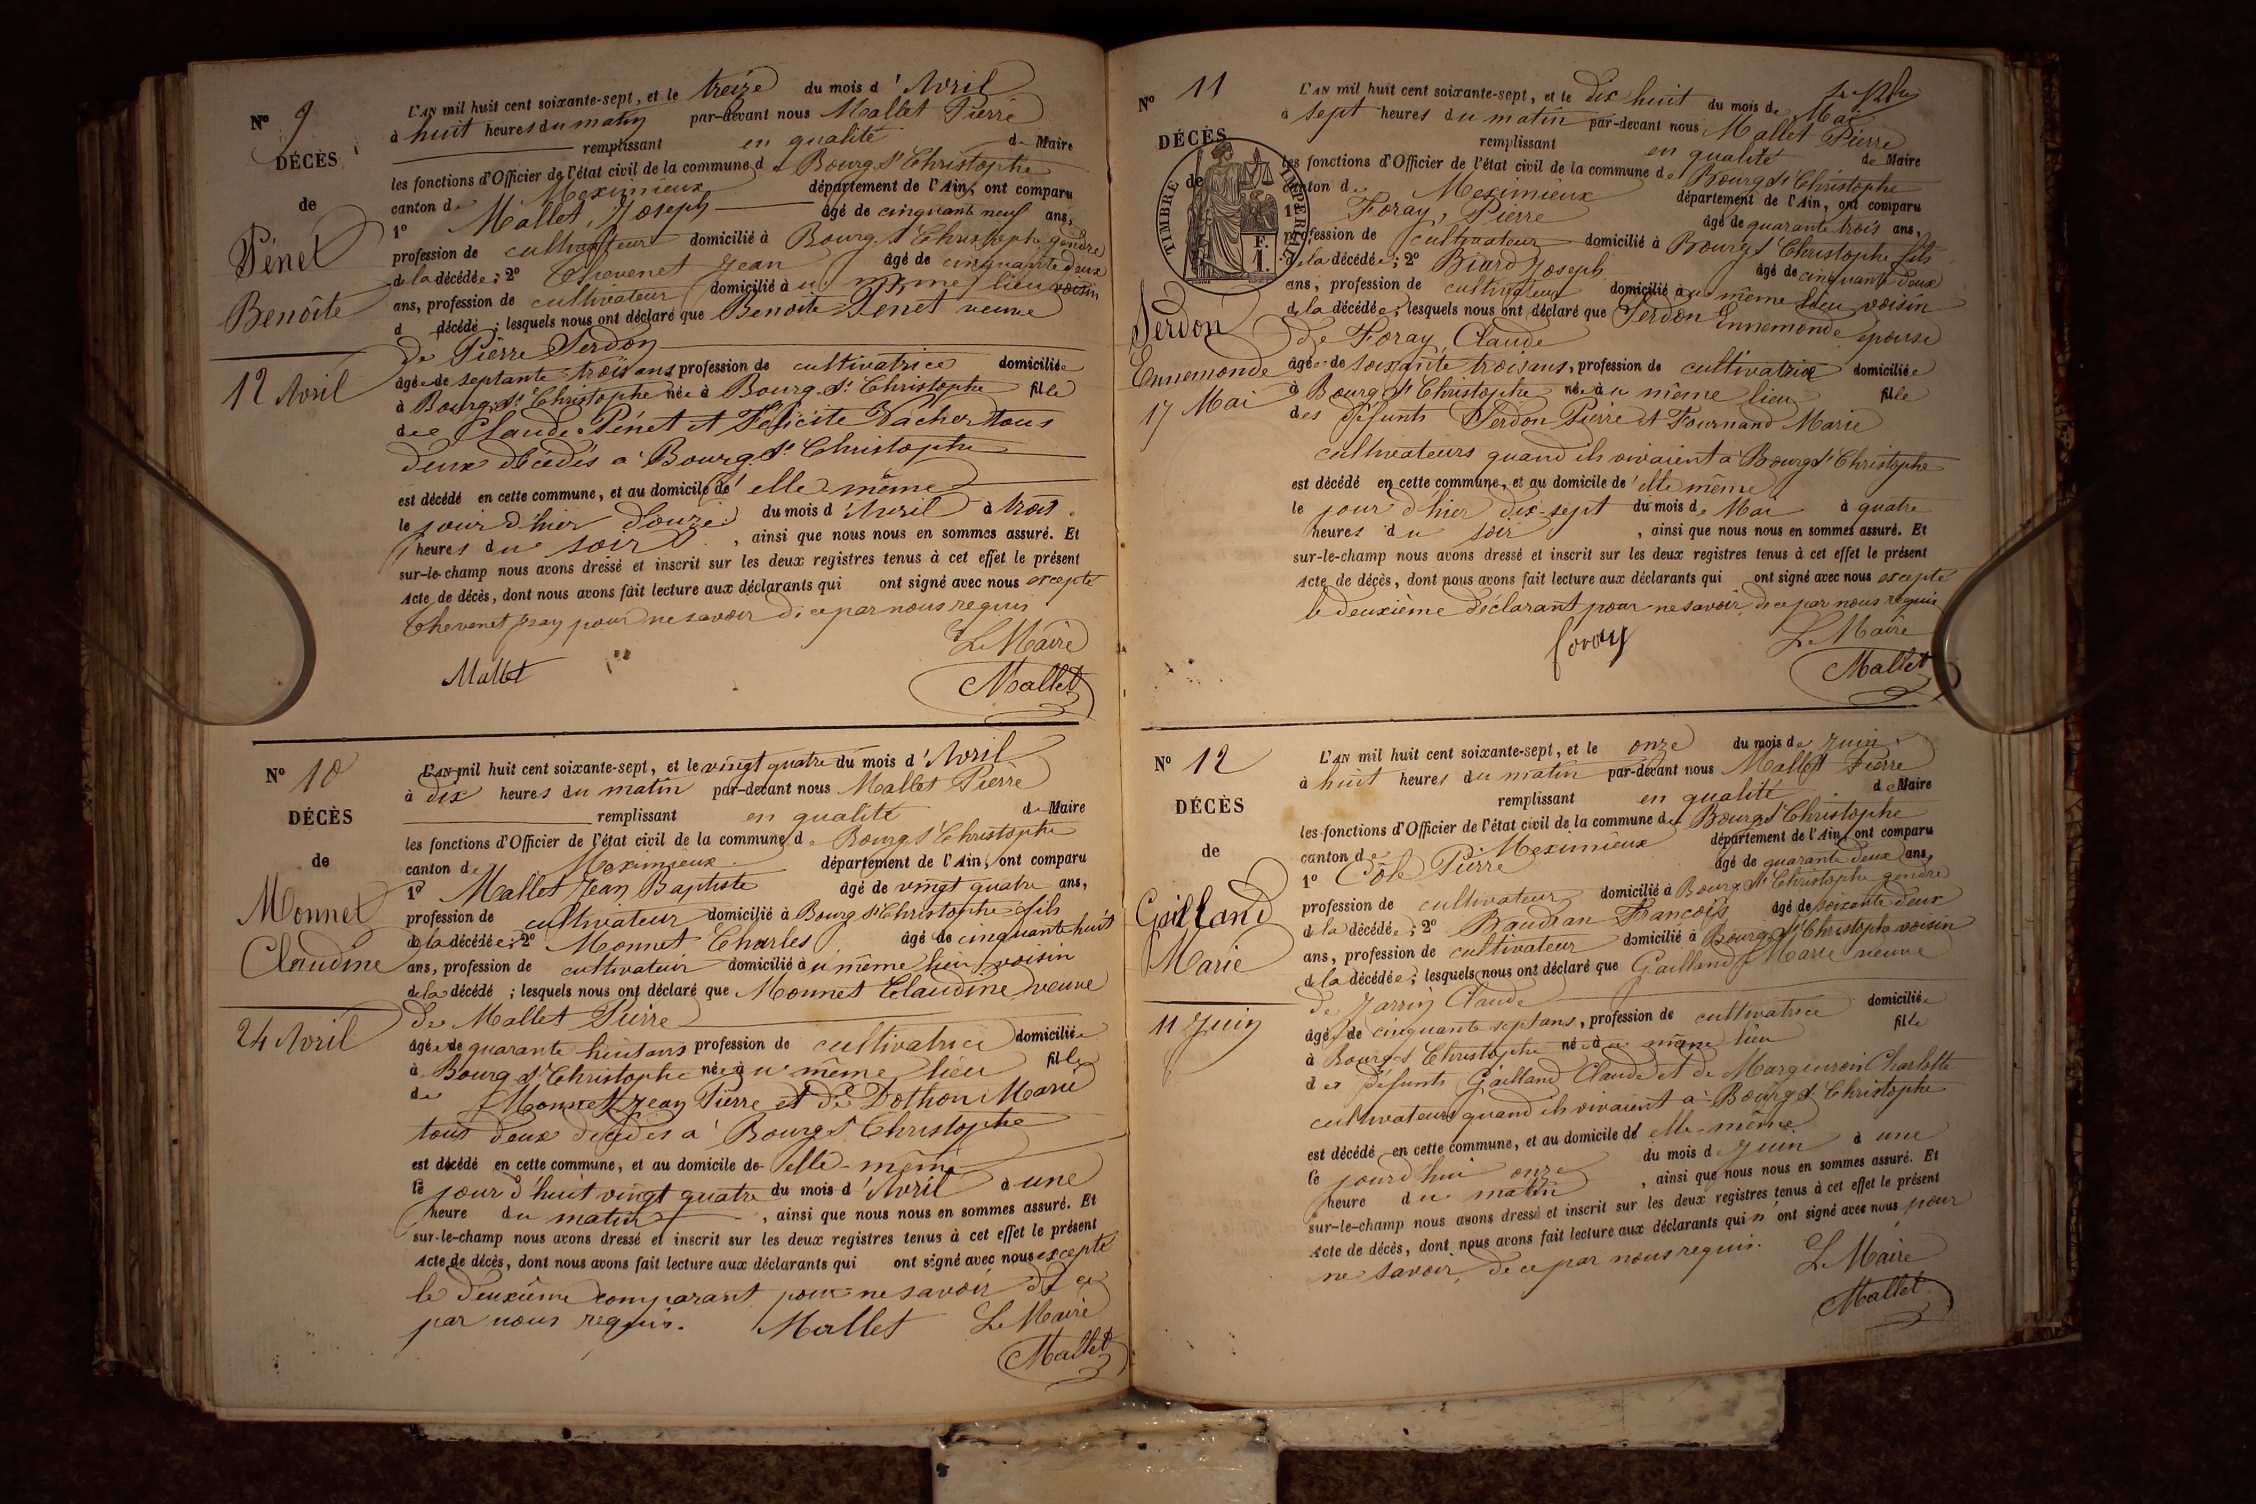 N° 9
DÉCÈS
de
Pénet
Benoîte
12 Avril
L'AN mil huit cent soixante-sept, et le treize du mois d'Avril
à huit heures du matin par-devant nous Mallet Pierre
remplissant en qualité de Maire
les fonctions d'Officier de l'état civil de la commune de Bourg St Christophe
canton de Meximieux département de l'Ain, ont comparu
1° Mallet Joseph âgé de cinquante neuf ans,
profession de cultivateur domicilié à Bourg St Christophe gendre
de la décédée; 2° Chevenet Jean âgé de cinquante deux
ans, profession de cultivateur domicilié à u même lieu voisin
d décédé ; lesquels nous ont déclaré que Benoîte Penet veuve
de Pierre Serdon
âgée de septante trois ans profession de cultivatrice domiciliée
à Bourg St Christophe née à Bourg St Christophe fille
de Claude Pénet et Félicité Vacher tous
deux décédés à Bourg St Christophe
est décédé en cette commune, et au domicile de elle même
le jour d'hier douze du mois d'Avril à trois
heures du soir , ainsi que nous nous en sommes assuré. Et
sur-le-champ nous avons dressé et inscrit sur les deux registres tenus à cet effet le présent
Acte de décès, dont nous avons fait lecture aux déclarants qui ont signé avec nous excepté
Chevenet Jean pour ne savoir de ce par nous requis
Le Maire
Mallet Mallet
N° 10
DÉCÈS
de
Monnet
Claudine
24 Avril
L'AN mil huit cent soixante-sept, et le vingt quatre du mois d'Avril
à dix heures du matin par-devant nous Mallet Pierre
remplissant en qualité de Maire
les fonctions d'Officier de l'état civil de la commune de Bourg St Christophe
canton de Meximieux département de l'Ain, ont comparu
1° Mallet Jean Baptiste âgé de vingt quatre ans,
profession de cultivateur domicilié à Bourg St Christophe fils
de la décédée; 2° Monnet Charles âgé de cinquante huit
ans, profession de cultivateur domicilié à u même lieu voisin
de la décédé ; lesquels nous ont déclaré que Monnet Claudine veuve
de Mallet Pierre
âgée de quarante huit ans profession de cultivatrice domiciliée
à Bourg St Christophe née à u même lieu fille
de Monnet Jean Pierre et de Dothon Marie
tous deux décédés à Bourg St Christophe
est décédé en cette commune, et au domicile de elle-même
le jour d'huit vingt quatre du mois d'Avril à une
heure du matin , ainsi que nous nous en sommes assuré. Et
sur-le-champ nous avons dressé et inscrit sur les deux registres tenus à cet effet le présent
Acte de décès, dont nous avons fait lecture aux déclarants qui ont signé avec nous excepté
le deuxième comparant pour ne savoir de ce
par nous requis. Mallet Le Maire
Mallet
N° 11
DÉCÈS
de
TIMBRE IMPÉRIAL
1 F.
Serdon
Ennemonde
17 Mai
L'AN mil huit cent soixante-sept, et le dix huit du mois de Mai
à sept heures du matin par-devant nous Mallet Pierre
remplissant en qualité de Maire
les fonctions d'Officier de l'état civil de la commune de Bourg St Christophe
canton de Meximieux département de l'Ain, ont comparu
1° Foray, Pierre âgé de quarante trois ans,
profession de cultivateur domicilié à Bourg St Christophe fils
de la décédée; 2° Biard Joseph âgé de cinquante deux
ans, profession de cultivateur domicilié à u même lieu voisin
de la décédée; lesquels nous ont déclaré que Serdon Ennemonde épouse
de Foray Claude
âgée de soixante trois ans, profession de cultivatrice domiciliée
à Bourg St Christophe née à u même lieu fille
des défunts Serdon Pierre et Fournand Marie
cultivateurs quand ils vivaient à Bourg St Christophe
est décédé en cette commune, et au domicile de elle même
le jour d'hier dix-sept du mois de Mai à quatre
heures du soir , ainsi que nous nous en sommes assuré. Et
sur-le-champ nous avons dressé et inscrit sur les deux registres tenus à cet effet le présent
Acte de décès, dont nous avons fait lecture aux déclarants qui ont signé avec nous excepté
le deuxième déclarant pour ne savoir de ce par nous requis
Foray Le Maire
Mallet
N° 12
DÉCÈS
de
Gailland
Marie
11 Juin
L'AN mil huit cent soixante-sept, et le onze du mois de Juin
à huit heures du matin par-devant nous Mallet Pierre
remplissant en qualité de Maire
les fonctions d'Officier de l'état civil de la commune de Bourg St Christophe
canton de Meximieux département de l'Ain, ont comparu
1° Côte Pierre âgé de quarante deux ans,
profession de cultivateur domicilié à Bourg St Christophe gendre
de la décédée; 2° Baudran François âgé de soixante deux
ans, profession de cultivateur domicilié à Bourg St Christophe voisin
de la décédée; lesquels nous ont déclaré que Gailland Marie veuve
de Jarrin Claude
âgée de cinquante sept ans, profession de cultivatrice domiciliée
à Bourg St Christophe née à u même lieu fille
des défunts Gailland Claude et de Charlotte
cultivateurs quand ils vivaient à Bourg St Christophe
est décédé en cette commune, et au domicile de elle-même
le jourd'hui onze du mois de Juin à une
heure du matin , ainsi que nous nous en sommes assuré. Et
sur-le-champ nous avons dressé et inscrit sur les deux registres tenus à cet effet le présent
Acte de décès, dont nous avons fait lecture aux déclarants qui n'ont signé avec nous pour
ne savoir de ce par nous requis. Le Maire
Mallet